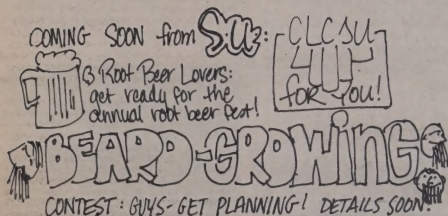 COMING SOON from S.U.:
CLCSU
4U
for YOU!
Root Beer Lovers:
get ready for the
annual root beer fest!
BEARD-GROWING
CONTEST: GUYS- GET PLANNING! DETAILS SOON